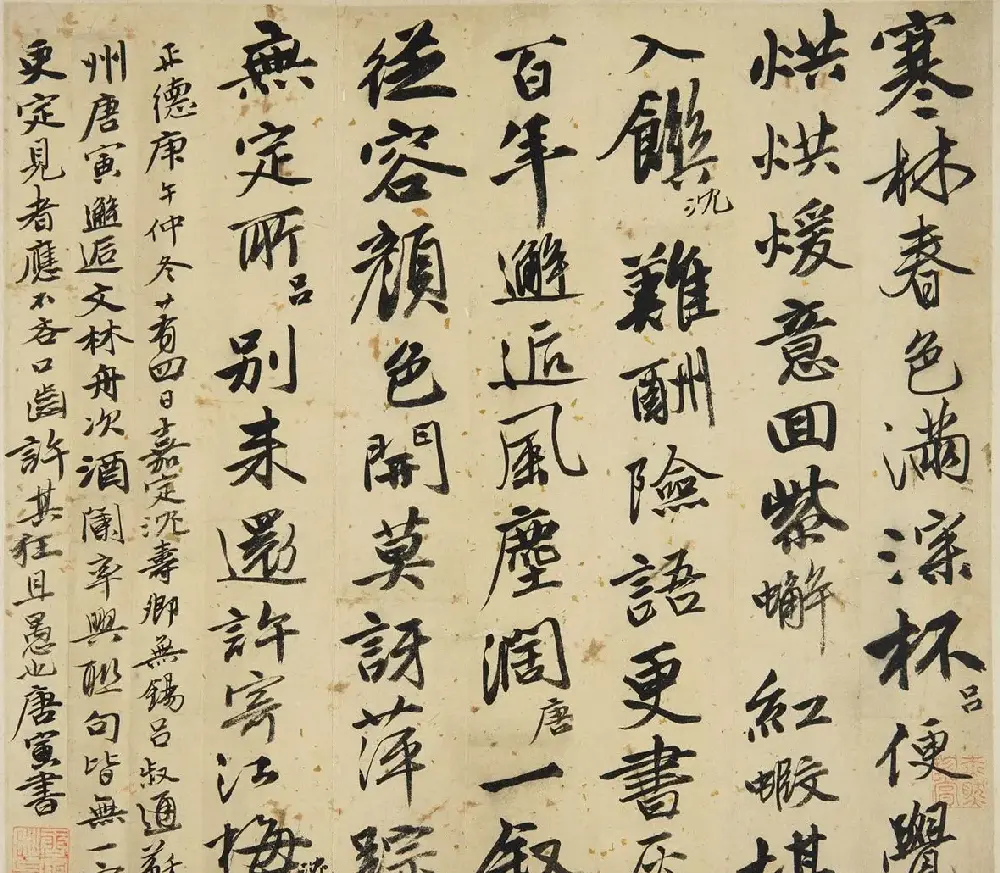 寒林春色滿深杯呂便覺
烘烘煖意回紫蠏紅蝦
入饌沈難酬險語更書灰
百年邂逅風塵濶唐一叙
從容顏色開莫訝萍踪
無定所呂別來還許寄江梅沈
正德庚午仲冬廿有四日嘉定沈壽卿無錫呂叔通蘇
州唐寅邂逅文林舟次酒闌率興聯句皆無一
更定見者應不吝口齒許其狂且愚也唐寅書